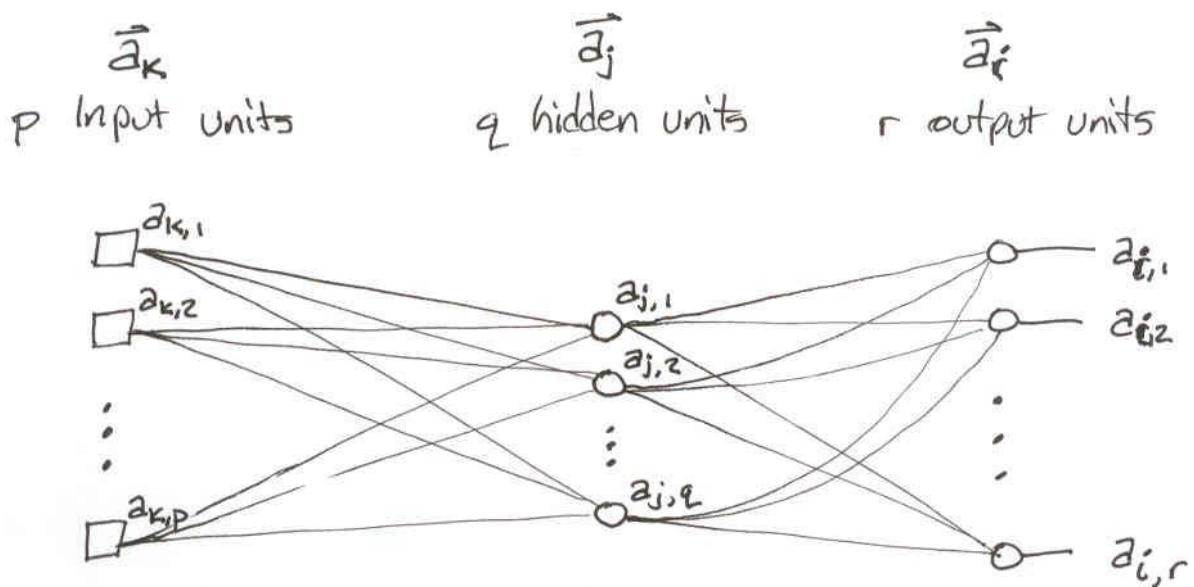 a⃗k a⃗j a⃗i
p Input units q hidden units r output units
ak,1
ak,2
ak,p
aj,1
aj,2
aj,q
ai,1
ai,2
ai,r